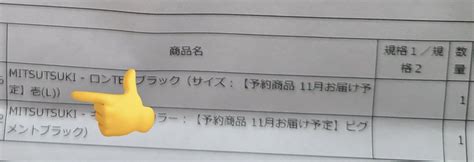 商品名
規格1／規格2
数量
MITSUTSUKI - ロンTE ブラック（サイズ：【予約商品 11月お届け予定】壱(L))
1
MITSUTSUKI - ラー：【予約商品 11月お届け予定】ピグメントブラック）
1